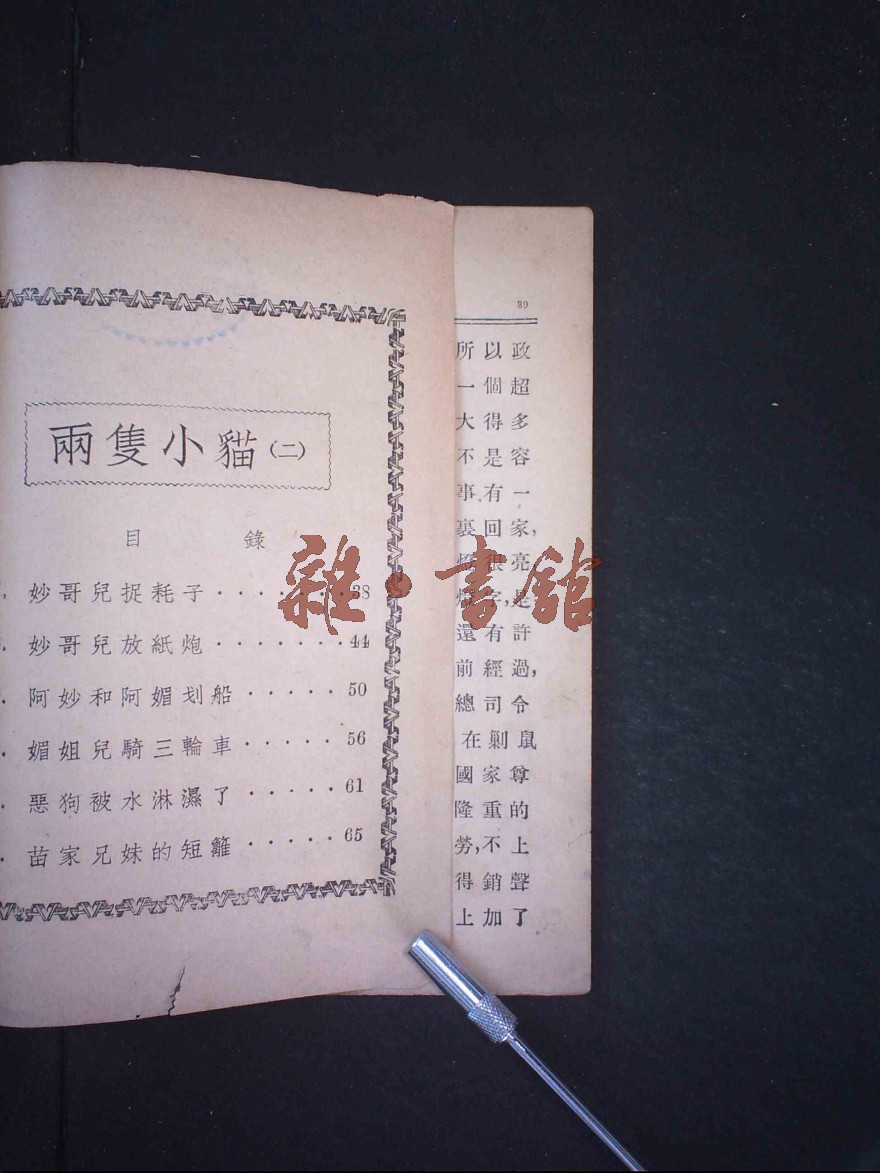 兩隻小貓(二)
目 錄
妙哥兒捉耗子·······38
妙哥兒放紙炮·······44
阿妙和阿媚划船·····50
媚姐兒騎三輪車·····56
惡狗被水淋濕了·····61
苗家兄妹的短籬·····65
39
所以政
一個超
大得多
不是容
事有一
裏回家,
很亮,
字,是
還有許
前經過,
總司令
在剿鼠
國家尊
隆重的
勞,不上
得銷聲
上加了
雜·書館